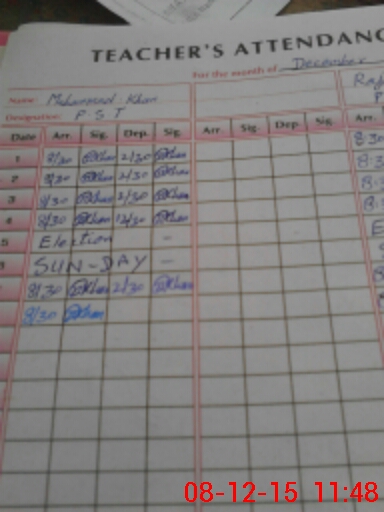 TEACHER'S ATTENDANC
For the month of December
Name: Muhammad Khan
Designation: P.S.T
Date Arr. Sig. Dep. Sig Arr. Sig. Dep. Sig. Arr.
1 8/30 Khan 2/30 Khan 8:30
2 8/30 Khan 2/30 Khan 8:3
3 8/30 Khan 2/30 Khan 8:3
4 8/30 Khan 12/30 Khan 8
5 Election - E
SUN-DAY -
8/30 Khan 2/30 Khan 8
8/30 Khan
08-12-15 11:48